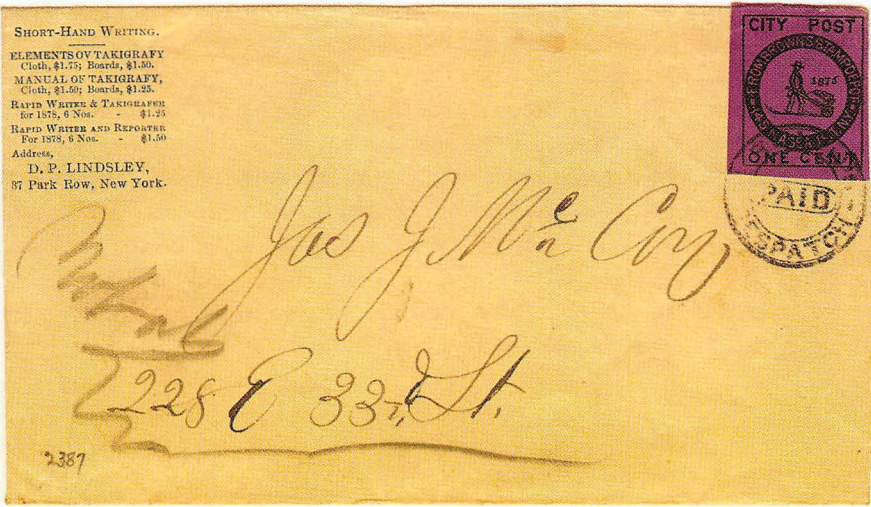 SHORT-HAND WRITING.
ELEMENTS OV TAKIGRAFY
Cloth, $1.75; Boards, $1.50.
MANUAL OF TAKIGRAFY,
Cloth, $1.50; Boards, $1.25.
RAPID WRITER & TAKIGRAFER
for 1878, 6 Nos. - $1.25
RAPID WRITER AND REPORTER
For 1878, 6 Nos. - $1.50
Address,
D. P. LINDSLEY,
37 Park Row, New York.
CITY POST
1876
ONE CENT
PAID
DESPATCH
Jas J. Mc Coy
228 E 33rd St.
2387